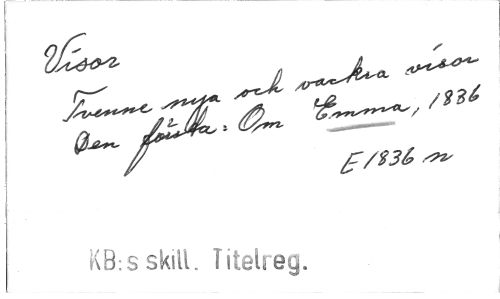 Visor
Tvenne nya och vackra visor
Den första: Om Emma, 1836
E 1836 n
KB:s skill. Titelreg.